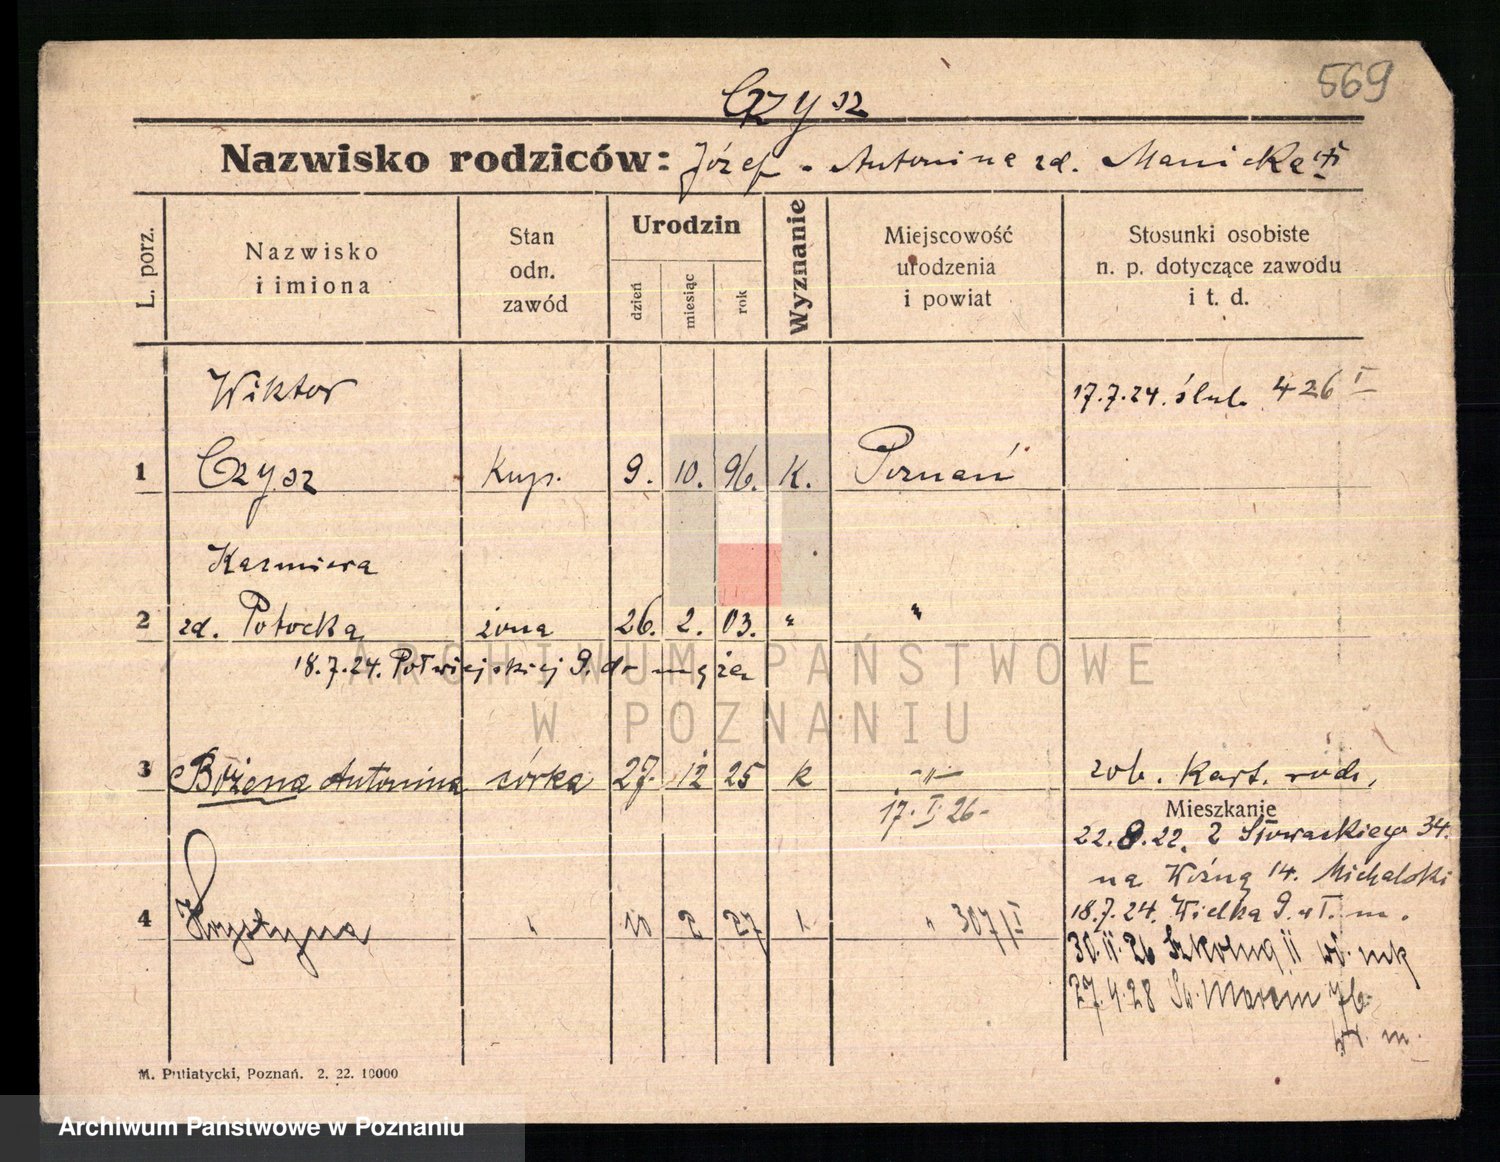 569
Czysz
Nazwisko rodziców: Józef - Antonina zd. Manicka
L. porz.
Nazwisko i imiona
Stan odn. zawód
Urodzin
dzień miesiąc rok
Wyznanie
Miejscowość urodzenia i powiat
Stosunki osobiste n. p. dotyczące zawodu i t. d.
Wiktor
17.7.24. ślub. 426 I
1 Czysz Kup. 9. 10. 96. K. Poznań
Kazmiera
2 zd. Potocka żona 26. 2. 03. " "
18.7.24. Półwiejskiej 9. do męża
ARCHIWUM PAŃSTWOWE
W POZNANIU
3 Bożena Antonina córka 27. 12 25 k -"-
rob. Kart. rodz.
17. I. 26-
Mieszkanie
22.8.22. Z Słowackiego 34.
na Woźną 14. Michalski
4 Krystyna " 10 2 27 " 307/I
18.7.24. Wielka 9. u T. m.
30.11.26 Szkolną 11 wł. mk
27.4.28 Św. Marcin 76
wł. m.
M. Putiatycki, Poznań. 2. 22. 10000
Archiwum Państwowe w Poznaniu